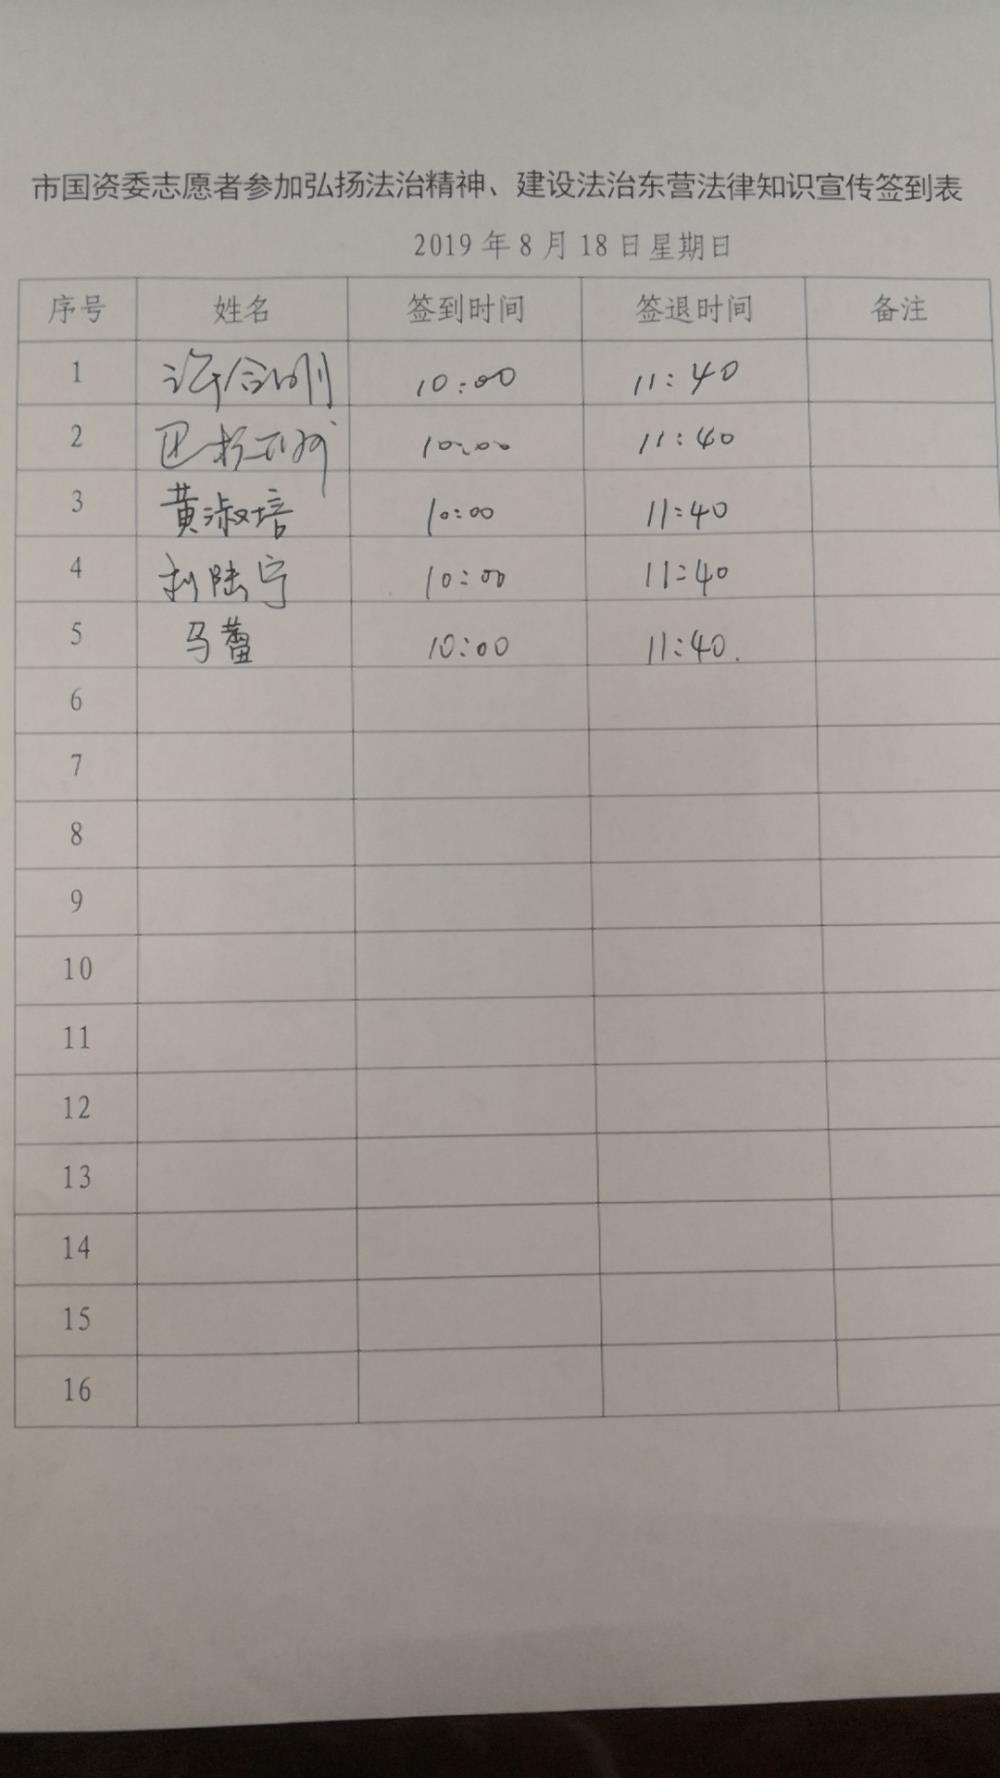 市国资委志愿者参加弘扬法治精神、建设法治东营法律知识宣传签到表
2019年8月18日星期日
序号 姓名 签到时间 签退时间 备注
1 许合刚 10:00 11:40
2 10:00 11:40
3 黄淑培 10:00 11:40
4 陆宁 10:00 11:40
5 马蕾 10:00 11:40.
6
7
8
9
10
11
12
13
14
15
16